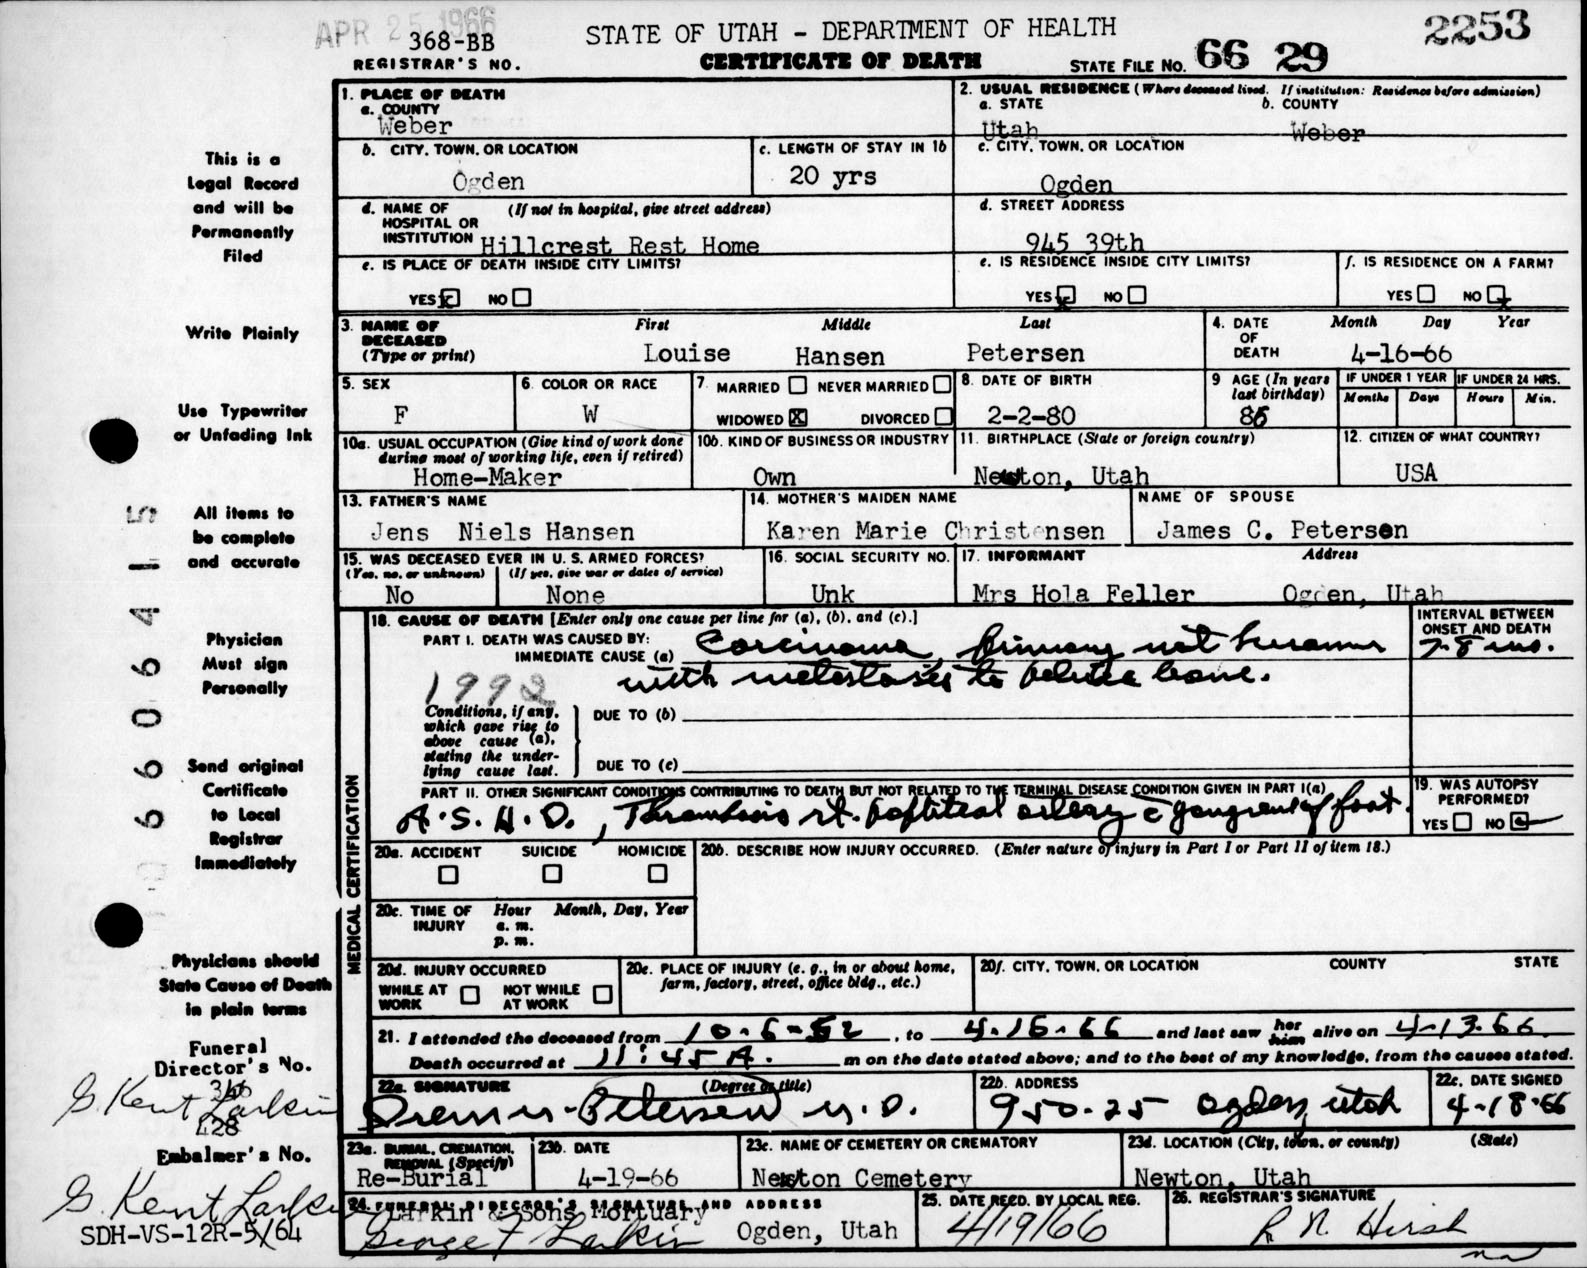 APR 25 1966
368-BB
REGISTRAR'S NO.
STATE OF UTAH - DEPARTMENT OF HEALTH
CERTIFICATE OF DEATH
STATE FILE NO. 66 29
2253
This is a
Legal Record
and will be
Permanently
Filed
Write Plainly
Use Typewriter
or Unfading Ink
All items to
be complete
and accurate
Physician
Must sign
Personally
Send original
Certificate
to Local
Registrar
Immediately
Physicians should
State Cause of Death
in plain terms
Funeral
Director's No.
366
G. Kent Larkin
428
Embalmer's No.
G. Kent Larkin
SDH-VS-12R-5/64
6606415
1. PLACE OF DEATH
a. COUNTY
Weber
2. USUAL RESIDENCE (Where deceased lived. If institution: Residence before admission)
a. STATE b. COUNTY
Utah Weber
b. CITY, TOWN, OR LOCATION
Ogden
c. LENGTH OF STAY IN 1b
20 yrs
c. CITY, TOWN, OR LOCATION
Ogden
d. NAME OF (If not in hospital, give street address)
HOSPITAL OR
INSTITUTION Hillcrest Rest Home
d. STREET ADDRESS
945 39th
e. IS PLACE OF DEATH INSIDE CITY LIMITS?
YES X NO
e. IS RESIDENCE INSIDE CITY LIMITS?
YES X NO
f. IS RESIDENCE ON A FARM?
YES NO X
3. NAME OF DECEASED (Type or print)
First Middle Last
Louise Hansen Petersen
4. DATE OF DEATH
Month Day Year
4-16-66
5. SEX
F
6. COLOR OR RACE
W
7. MARRIED NEVER MARRIED
WIDOWED X DIVORCED
8. DATE OF BIRTH
2-2-80
9 AGE (In years last birthday)
86
IF UNDER 1 YEAR IF UNDER 24 HRS.
Months Days Hours Min.
10a. USUAL OCCUPATION (Give kind of work done
during most of working life, even if retired)
Home-Maker
10b. KIND OF BUSINESS OR INDUSTRY
Own
11. BIRTHPLACE (State or foreign country)
Newton, Utah
12. CITIZEN OF WHAT COUNTRY?
USA
13. FATHER'S NAME
Jens Niels Hansen
14. MOTHER'S MAIDEN NAME
Karen Marie Christensen
NAME OF SPOUSE
James C. Petersen
15. WAS DECEASED EVER IN U. S. ARMED FORCES?
(Yes, no, or unknown) (If yes, give war or dates of service)
No None
16. SOCIAL SECURITY NO.
Unk
17. INFORMANT Address
Mrs Hola Feller Ogden, Utah
MEDICAL CERTIFICATION
18. CAUSE OF DEATH [Enter only one cause per line for (a), (b), and (c).]
PART I. DEATH WAS CAUSED BY:
IMMEDIATE CAUSE (a) Carcinoma, primary not known
with metastasis to pelvic bone.
INTERVAL BETWEEN
ONSET AND DEATH
7-8 mo.
1992
Conditions, if any,
which gave rise to
above cause (a),
stating the under-
lying cause last.
DUE TO (b)
DUE TO (c)
PART II. OTHER SIGNIFICANT CONDITIONS CONTRIBUTING TO DEATH BUT NOT RELATED TO THE TERMINAL DISEASE CONDITION GIVEN IN PART I(a)
A.S.H.D., Thrombosis rt. popliteal artery c̄ gangrene of foot.
19. WAS AUTOPSY
PERFORMED?
YES NO
20a. ACCIDENT SUICIDE HOMICIDE
20b. DESCRIBE HOW INJURY OCCURRED. (Enter nature of injury in Part I or Part II of item 18.)
20c. TIME OF INJURY
Hour Month, Day, Year
a. m.
p. m.
20d. INJURY OCCURRED
WHILE AT WORK NOT WHILE AT WORK
20e. PLACE OF INJURY (e. g., in or about home,
farm, factory, street, office bldg., etc.)
20f. CITY, TOWN, OR LOCATION COUNTY STATE
21. I attended the deceased from 10-6-52, to 4-16-66 and last saw her him alive on 4-13-66
Death occurred at 11:45 A. m on the date stated above; and to the best of my knowledge, from the causes stated.
22a. SIGNATURE (Degree or title)
Petersen M.D.
22b. ADDRESS
950-25 Ogden, Utah
22c. DATE SIGNED
4-18-66
23a. BURIAL, CREMATION,
REMOVAL (Specify)
Re-Burial
23b. DATE
4-19-66
23c. NAME OF CEMETERY OR CREMATORY
Newton Cemetery
23d. LOCATION (City, town, or county) (State)
Newton, Utah
24. FUNERAL DIRECTOR'S SIGNATURE AND ADDRESS
Larkin & Sons Mortuary
George F Larkin Ogden, Utah
25. DATE RECD. BY LOCAL REG.
4/19/66
26. REGISTRAR'S SIGNATURE
R N. Hirsh